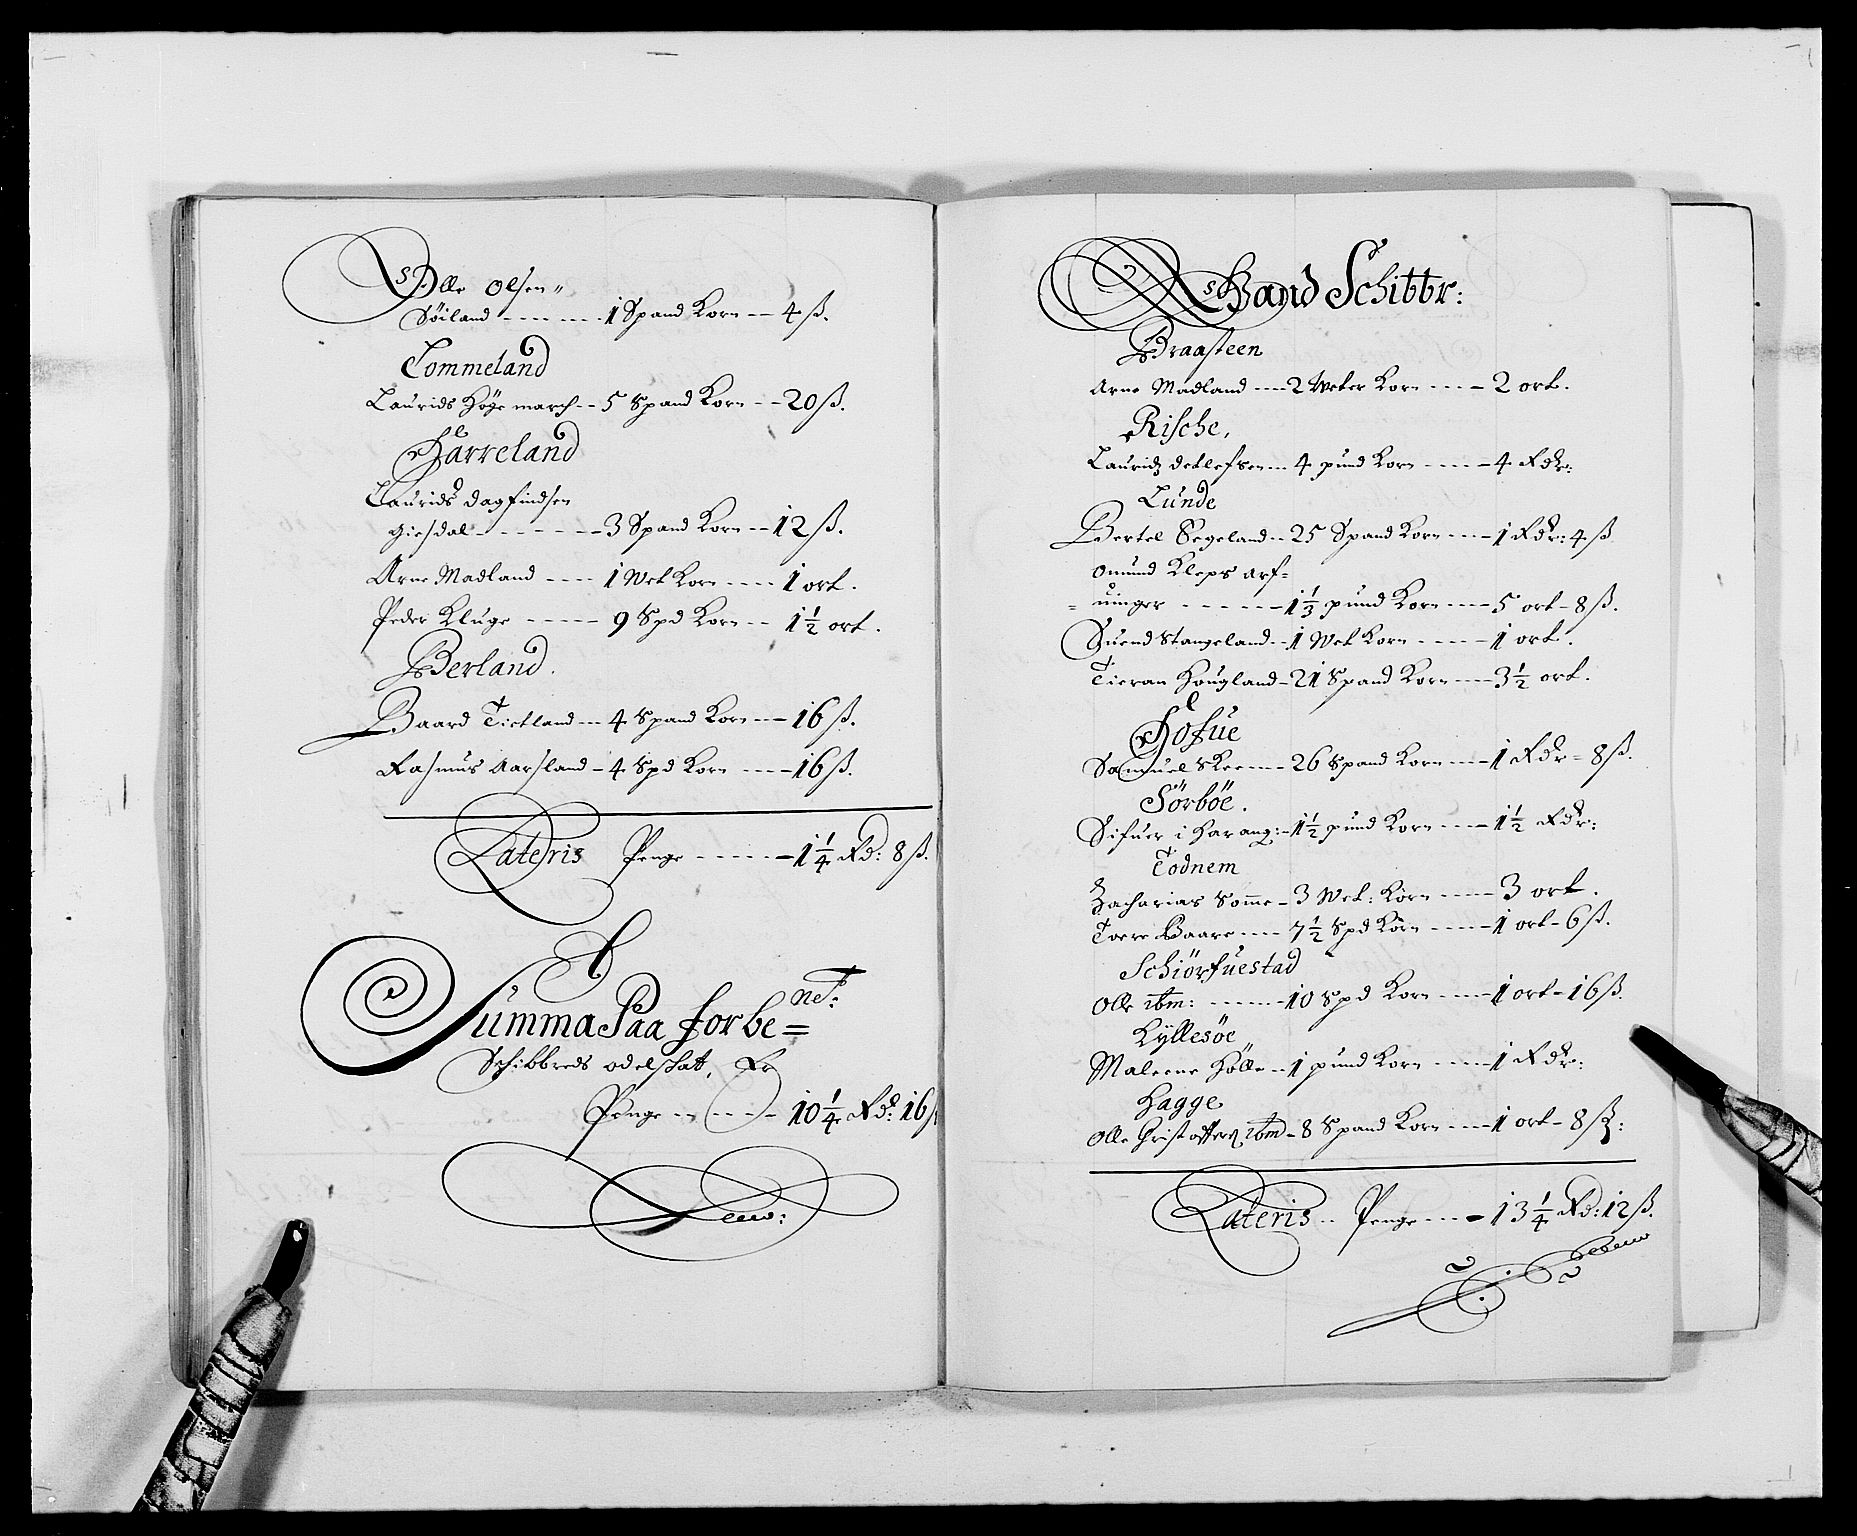 Olle Olsen
Söiland ------- 1 Spand Korn -- 4 ß.
Tommeland
Laurids Höyemarch -- 5 Spand Korn -- 20 ß.
Harreland
Laurids dagfindsen
Giesdal ------- 3 Spand Korn -- 12 ß.
Arne Madland ---- 1 Wet Korn ---- 1 ort.
Peder Kluge ----- 9 Spd Korn -- 1½ ort.
Berland.
Baard Tietland -- 4 Spand Korn --- 16 ß.
Rasmus Aarsland - 4 Spd Korn ---- 16 ß.
Lateris Penge ------ 1¼ Rd: 8 ß.
Summa Paa forbe=net:
Schibbreds odelschat, Er
Penge ------ 10¼ Rd: 16 ß
Strand Schibbr:
Braasteen
Arne Madland ---- 2 Weter Korn ---- 2 ort.
Rische,
Lauridz detlefsen -- 4 pund Korn ----- 4 Rdr:
Lunde
Bertel Segeland -- 25 Spand Korn ---- 1 Rdr: 4 ß
Omund Kleps arf=
=uinger ------ 1⅓ pund Korn ---- 5 ort - 8 ß.
Suend Stangeland -- 1 Wet Korn ----- 1 ort.
Tieran Hougland - 21 Spand Korn ---- 3½ ort.
Hofue
Samuel Skeen --- 26 Spand Korn ---- 1 Rdr - 8 ß.
Sörböe.
Sifuer i Harang: - 1½ pund Korn ---- 1½ Rdr:
Todnem
Zacharias Somme - 3 Wet: Korn ----- 3 ort.
Toere Baare ---- 7½ Spd Korn ----- 1 ort - 6 ß.
Schiörfuestad
Olle ibm: ------ 10 Spd Korn ---- 1 ort - 16 ß.
Kyllesöe
Maleene Hölle -- 1 pund Korn ----- 1 Rdr:
Hagge
Olle Christoffersz ibm - 8 Spand Korn ---- 1 ort - 8 ß:
Lateris -- Penge ---- 13¼ Rd: 12 ß.